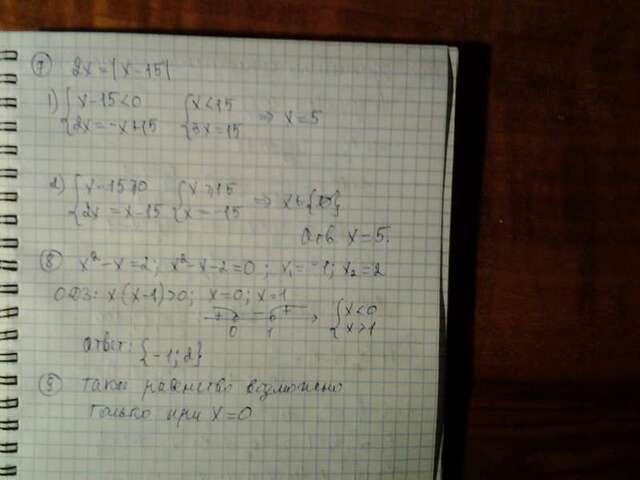 7 2x=|x-15|
1) { x-15<0 { x<15 ⇒ x=5
{ 2x=-x+15 { 3x=15
2) { x-15≥0 { x≥15 ⇒ x∈{∅}
{ 2x=x-15 { x=-15
Отв x=5.
8 x²-x=2; x²-x-2=0; x₁=-1; x₂=2
ОДЗ: x(x-1)>0; x=0; x=1
+ - + { x<0
0 1 { x>1
ответ: {-1;2}
9 такое равенство возможно
только при x=0